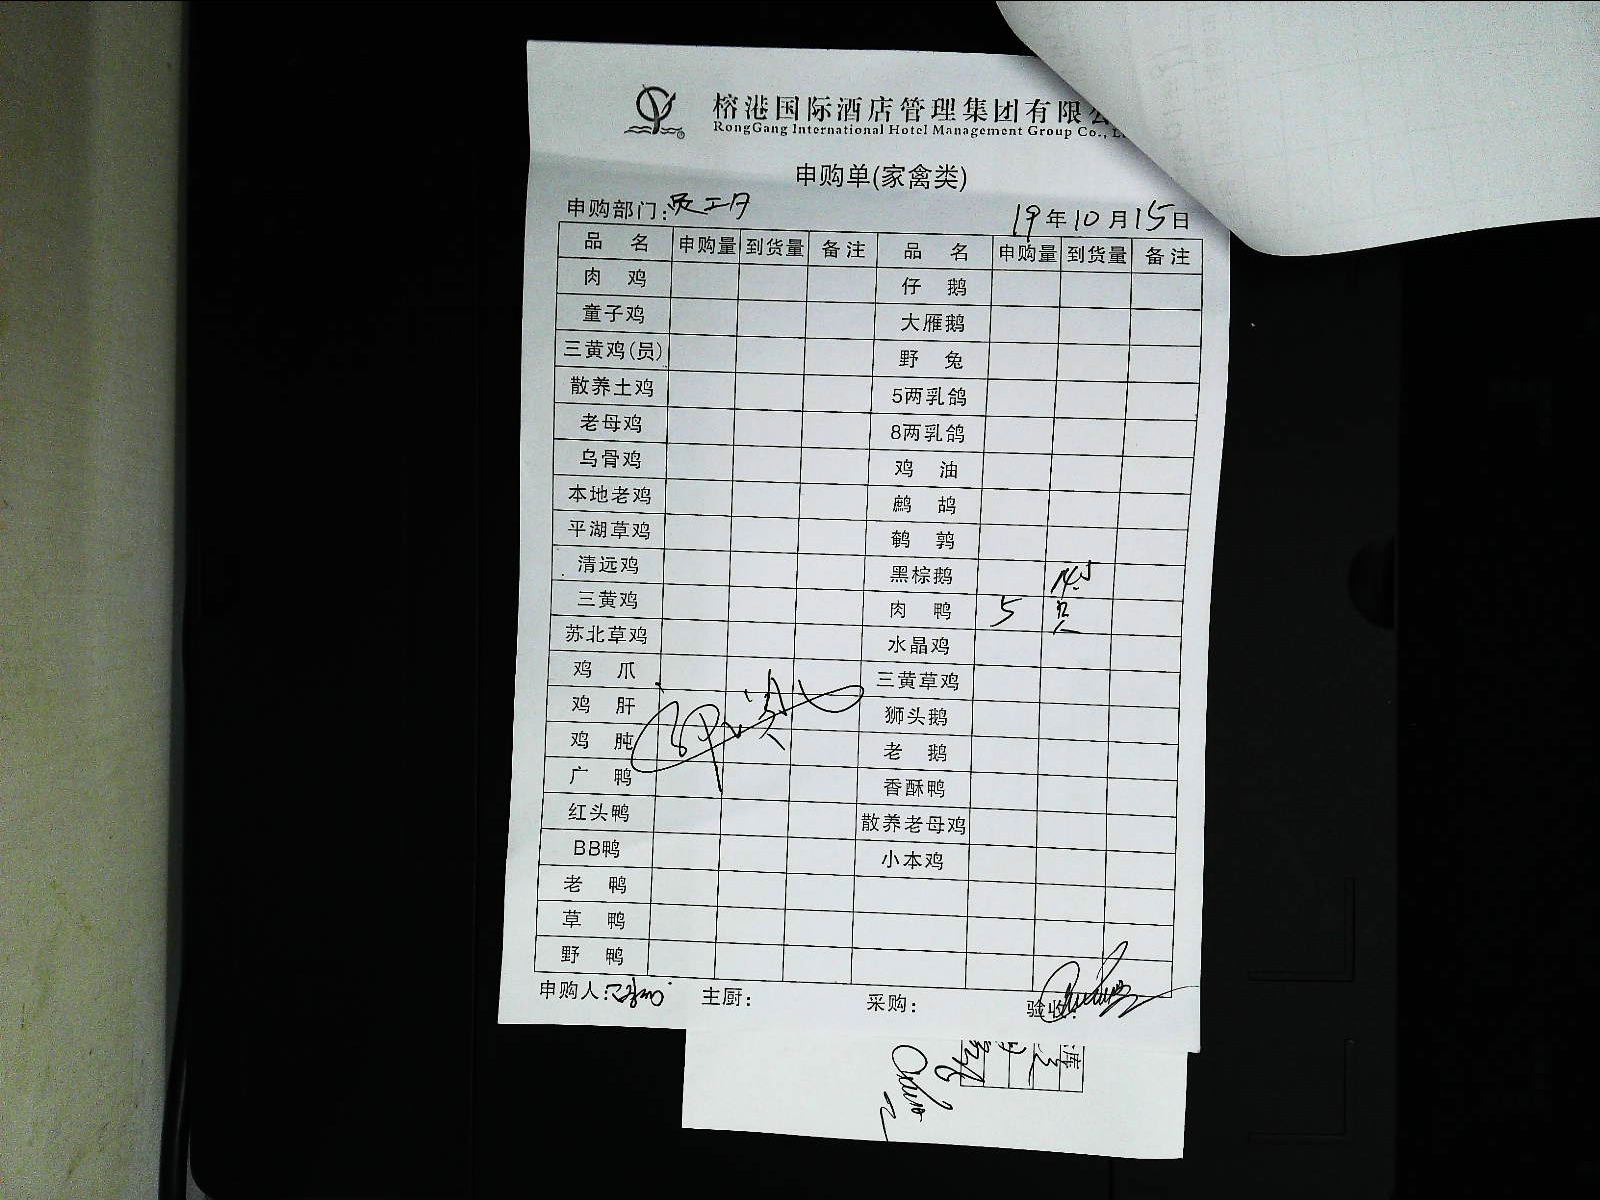 榕港国际酒店管理集团有限
RongGang International Hotel Management Group Co.,
申购单(家禽类)
申购部门: 员工 19年10月15日
品 名 申购量 到货量 备注 品 名 申购量 到货量 备注
肉 鸡 仔 鹅
童子鸡 大雁鹅
三黄鸡(员) 野 兔
散养土鸡 5两乳鸽
老母鸡 8两乳鸽
乌骨鸡 鸡 油
本地老鸡 鹧 鸪
平湖草鸡 鹌 鹑
清远鸡 黑棕鹅
三黄鸡 肉 鸭 5
苏北草鸡 水晶鸡
鸡 爪 三黄草鸡
鸡 肝 狮头鹅
鸡 肫 老 鹅
广 鸭 香酥鸭
红头鸭 散养老母鸡
BB鸭 小本鸡
老 鸭
草 鸭
野 鸭
申购人: 主厨: 采购: 验收: